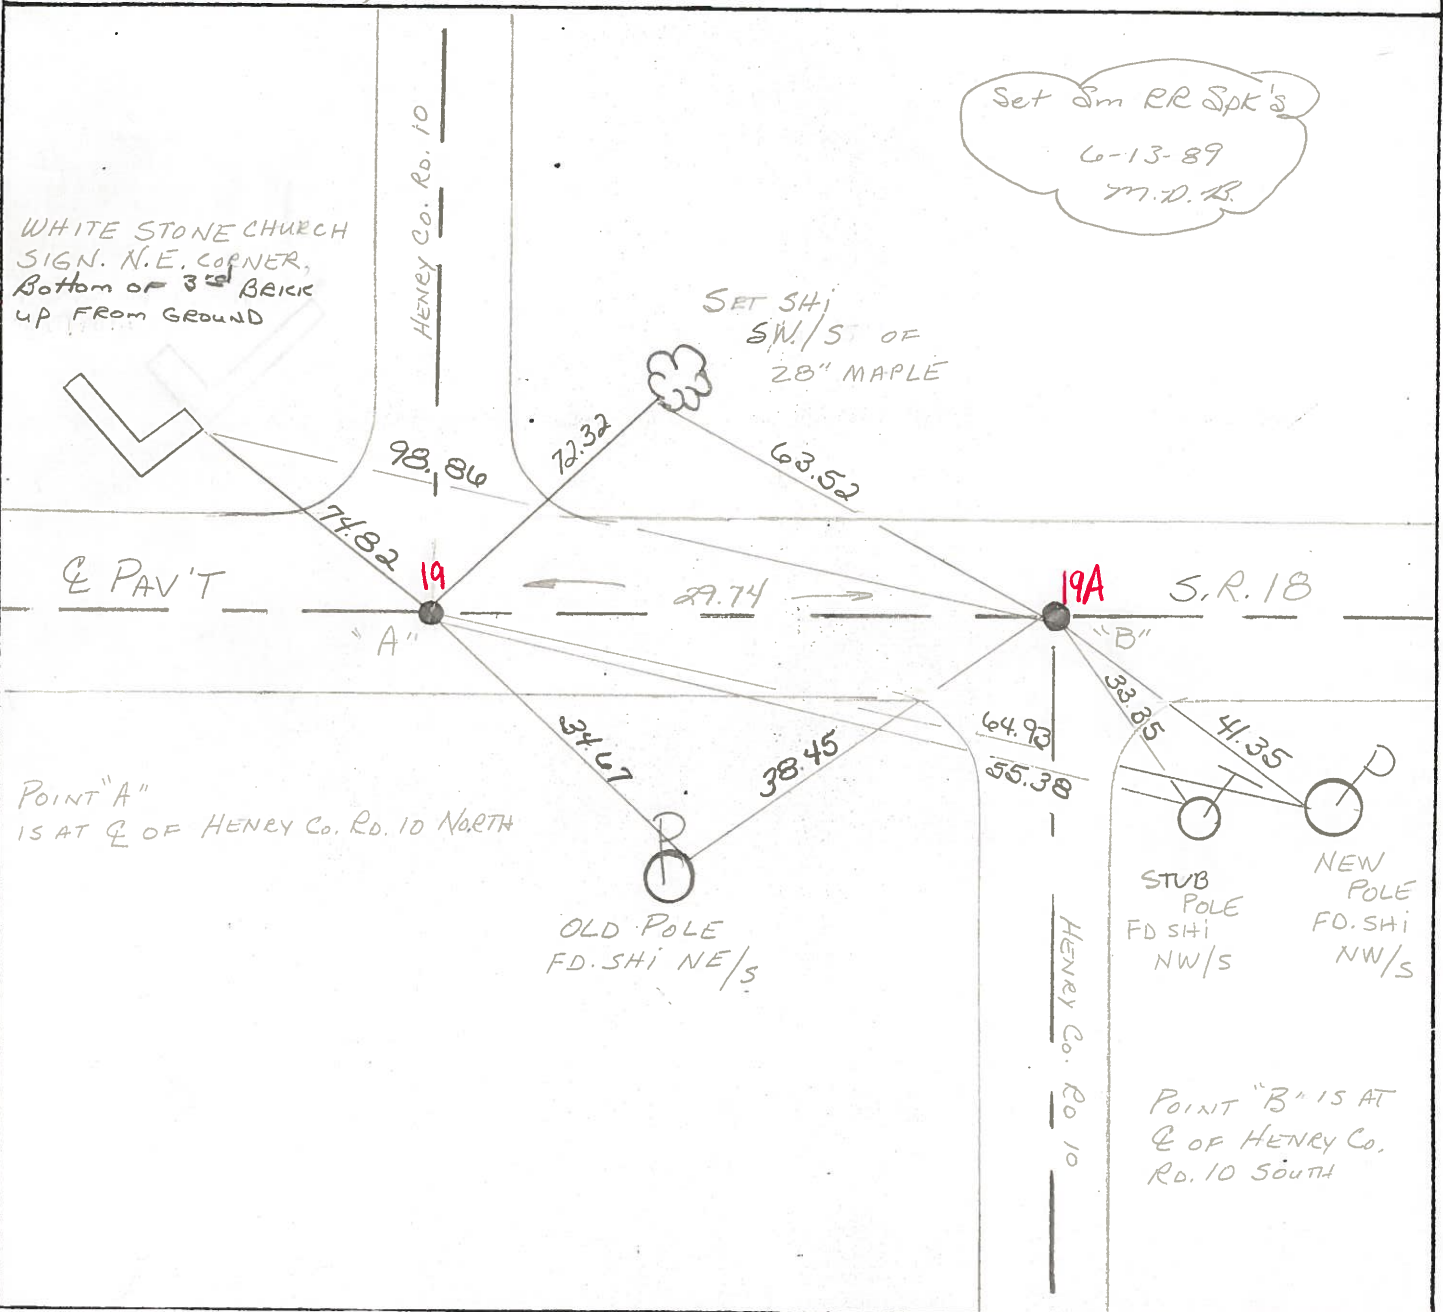 Set Sm RR Spk's
6-13-89
M.D.B.
HENRY Co. RD. 10
WHITE STONE CHURCH
SIGN. N.E. CORNER,
Bottom OF 3rd BRICK
UP FROM GROUND
SET SHi
SW/S OF
28" MAPLE
98.86
72.32
63.52
74.82
℄ PAV'T
19
29.74
19A
S.R. 18
"A"
"B"
33.85
41.35
64.93
55.38
34.67
38.45
POINT "A"
IS AT ℄ OF HENRY Co. RD. 10 NORTH
OLD POLE
FD. SHi NE/S
STUB
POLE
FD SHi
NW/S
NEW
POLE
FD. SHi
NW/S
HENRY Co. RD 10
POINT "B" IS AT
℄ OF HENRY Co.
RD. 10 SOUTH